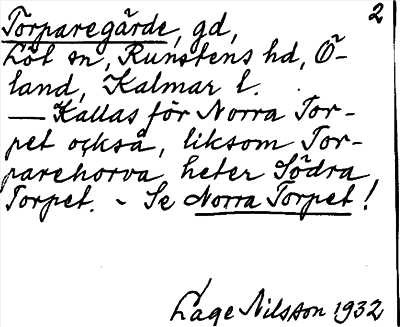 2
Torparegärde, gd,
Löt sn, Runstens hd, Ö-
land, Kalmar l.
— Kallas för Norra Tor-
pet också, liksom Tor-
parehorva heter Södra
Torpet. - Se Norra Torpet!
Lage Nilsson 1932